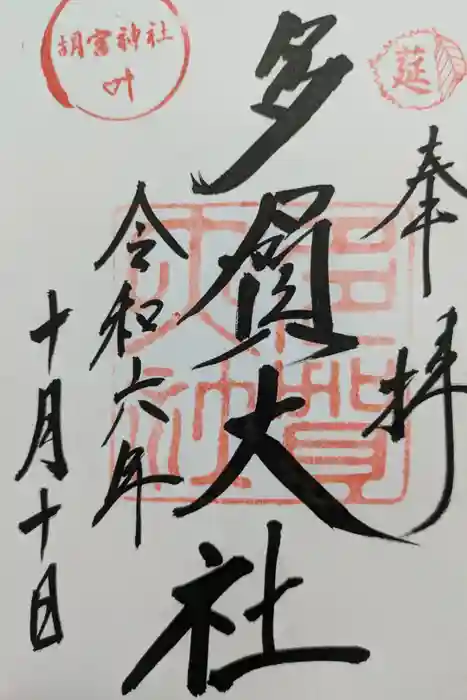 奉拝
莚
多賀大社
多賀大社
令和六年
十月十日
胡宮神社
叶